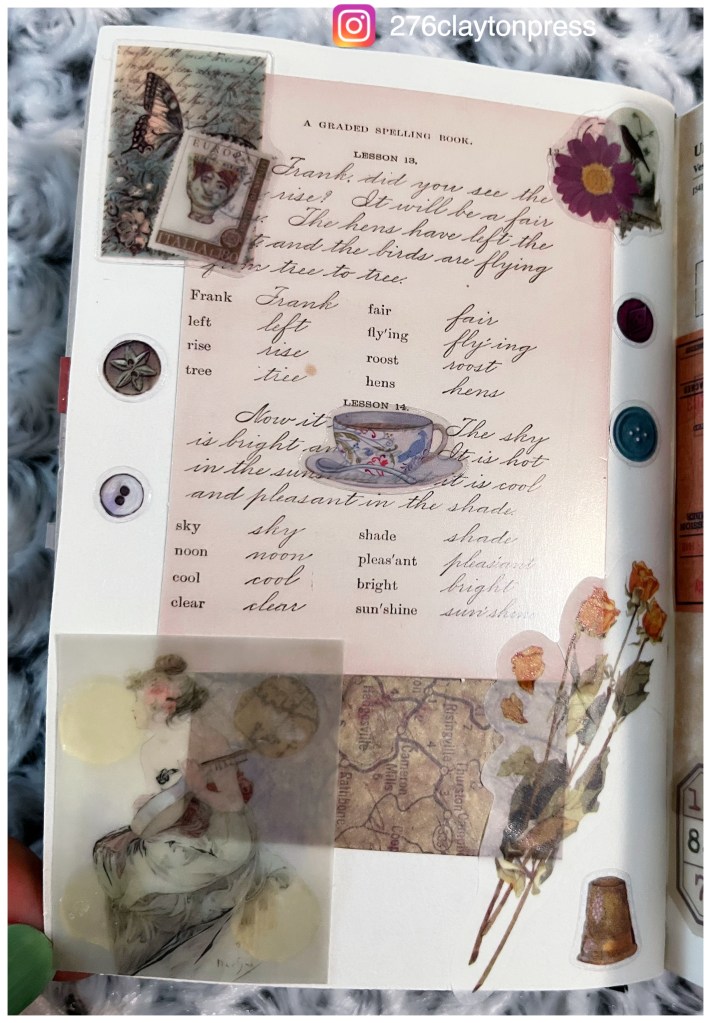 276claytonpress
A GRADED SPELLING BOOK.
LESSON 13.
Frank, did you see the
rise? It will be a fair
The hens have left the
and the birds are flying
tree to tree.
Frank Frank fair fair
left left fly'ing fly'ing
rise rise roost roost
tree tree hens hens
LESSON 14.
Now it The sky
is bright It is hot
in the sun it is cool
and pleasant in the shade.
sky sky shade shade
noon noon pleas'ant pleas'ant
cool cool bright bright
clear clear sun'shine sun'shine
EUROPA
ITALIA
Risingville
Cameron
Mills
Rathbone
Thurston
1
8
7